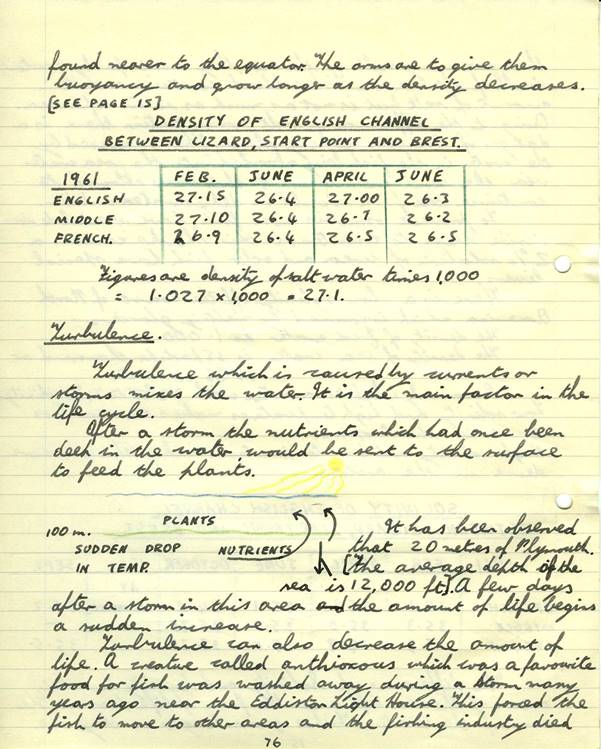 found nearer to the equator. The arms are to give them
buoyancy and grow longer as the density decreases.
[SEE PAGE 15]
DENSITY OF ENGLISH CHANNEL
BETWEEN LIZARD, START POINT AND BREST.
1961 FEB. JUNE APRIL JUNE
ENGLISH 27.15 26.4 27.00 26.3
MIDDLE 27.10 26.4 26.7 26.2
FRENCH. 26.9 26.4 26.5 26.5
Figures are density of salt water times 1,000
= 1.027 x 1,000 = 27.1.
Turbulence.
Turbulence which is caused by currents or
storms mixes the water. It is the main factor in the
life cycle.
After a storm the nutrients which had once been
deep in the water would be sent to the surface
to feed the plants.
PLANTS
100 m.
SUDDEN DROP NUTRIENTS
IN TEMP.
It has been observed
that 20 metres of Plymouth.
[The average depth of the
sea is 12,000 ft]. A few days
after a storm in this area and the amount of life begins
a sudden increase.
Turbulence can also decrease the amount of
life. A creature called anthioxous which was a favourite
food for fish was washed away during a storm many
years ago near the Eddiston Light House. This forced the
fish to move to other areas and the fishing industry died
76